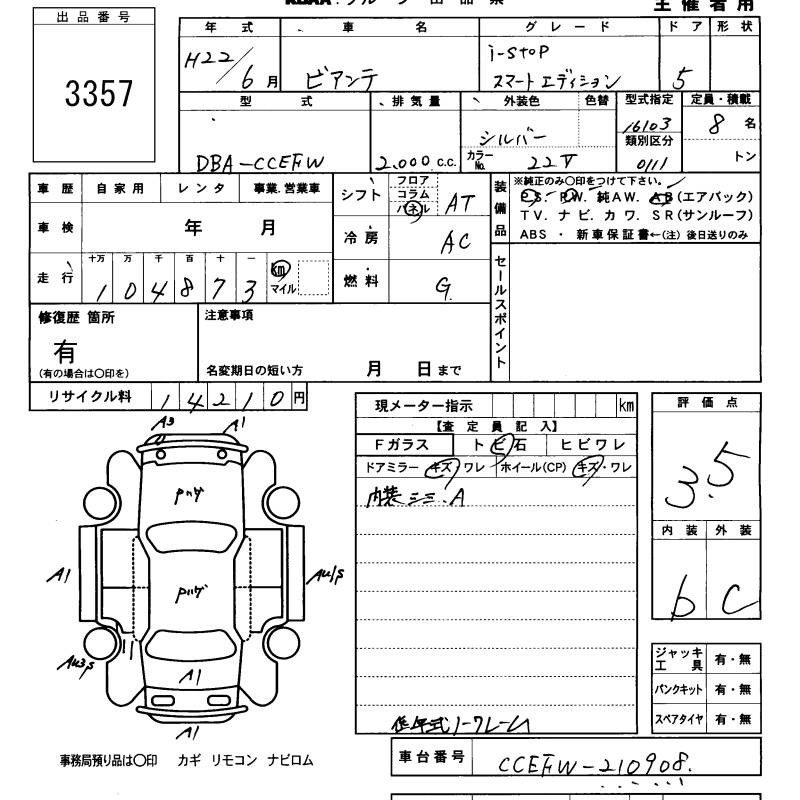 主催者用
出品番号
3357
年式 車名 グレード ドア 形状
H22/6月 ビアンテ i-stop スマートエディション 5
型式 排気量 外装色 色替 型式指定 定員・積載
DBA-CCEFW 2.000 c.c. シルバー 16103 8名
カラーNo. 22V 類別区分 0111 トン
車歴 自家用 レンタ 事業.営業車
車検 年 月
走行 十万 万 千 百 十 一 km マイル
1 0 4 8 7 3
シフト フロア コラム パネル AT
冷房 AC
燃料 G
装備品
※純正のみ○印をつけて下さい。
P.S. P.W. 純AW. AB(エアバック)
TV. ナビ. カワ. SR(サンルーフ)
ABS ・ 新車保証書←(注) 後日送りのみ
セールスポイント
修復歴 箇所
有
(有の場合は○印を)
注意事項
名変期日の短い方 月 日まで
リサイクル料 1 4 2 1 0 円
現メーター指示 km
【査定員記入】
Fガラス トビ石 ヒビワレ
ドアミラー キズ・ワレ ホイール(CP) キズ・ワレ
内装シミ.A
評価点
3.5
内装 外装
b C
A3 A1
A1
A1
A1
ジャッキ工具 有・無
パンクキット 有・無
スペアタイヤ 有・無
事務局預り品は○印 カギ リモコン ナビロム
車台番号 CCEFW-210908.